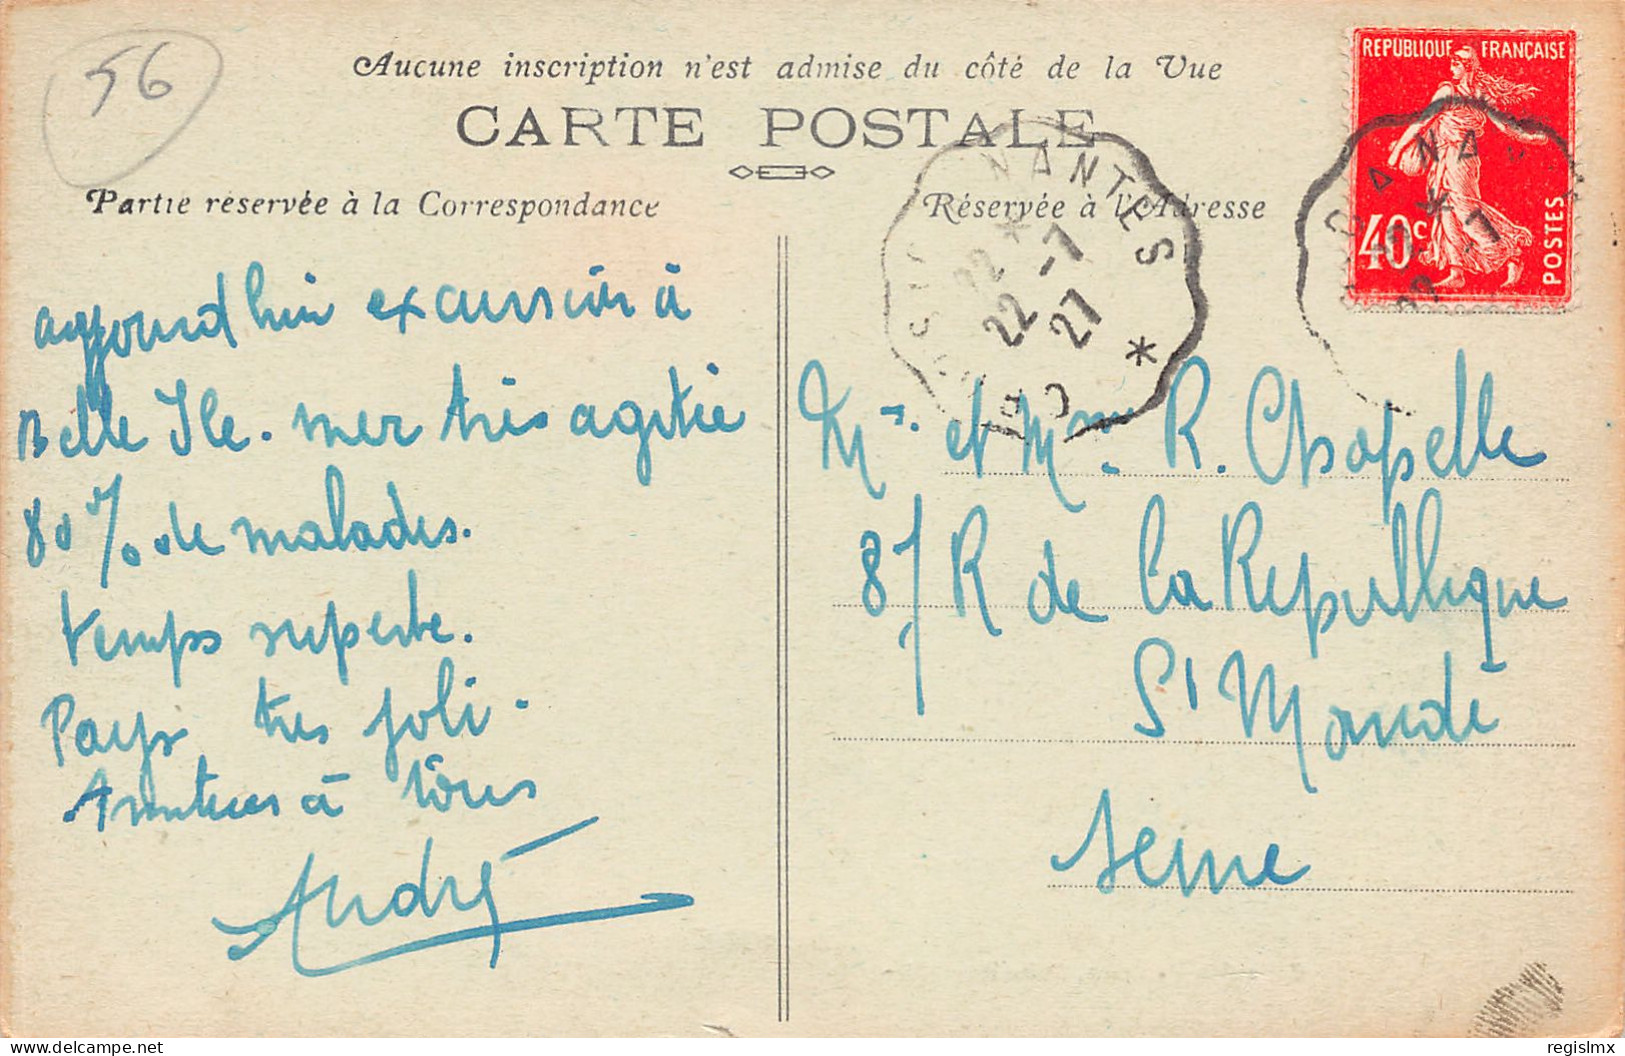 56
Aucune inscription n'est admise du côté de la Vue
CARTE POSTALE
Partie réservée à la Correspondance
Réservée à l'Adresse
REPUBLIQUE FRANÇAISE
40c
POSTES
NANTES
22 *
22 -7
27
*
aujourd'hui excursion à
Belle Ile. mer très agitée
80% de malades.
temps superbe.
Pays très joli.
Amitiés à tous
André
Mr. et Mme R. Chapelle
87 R de La République
St Mandé
Seine
delcampe.net
regislmx